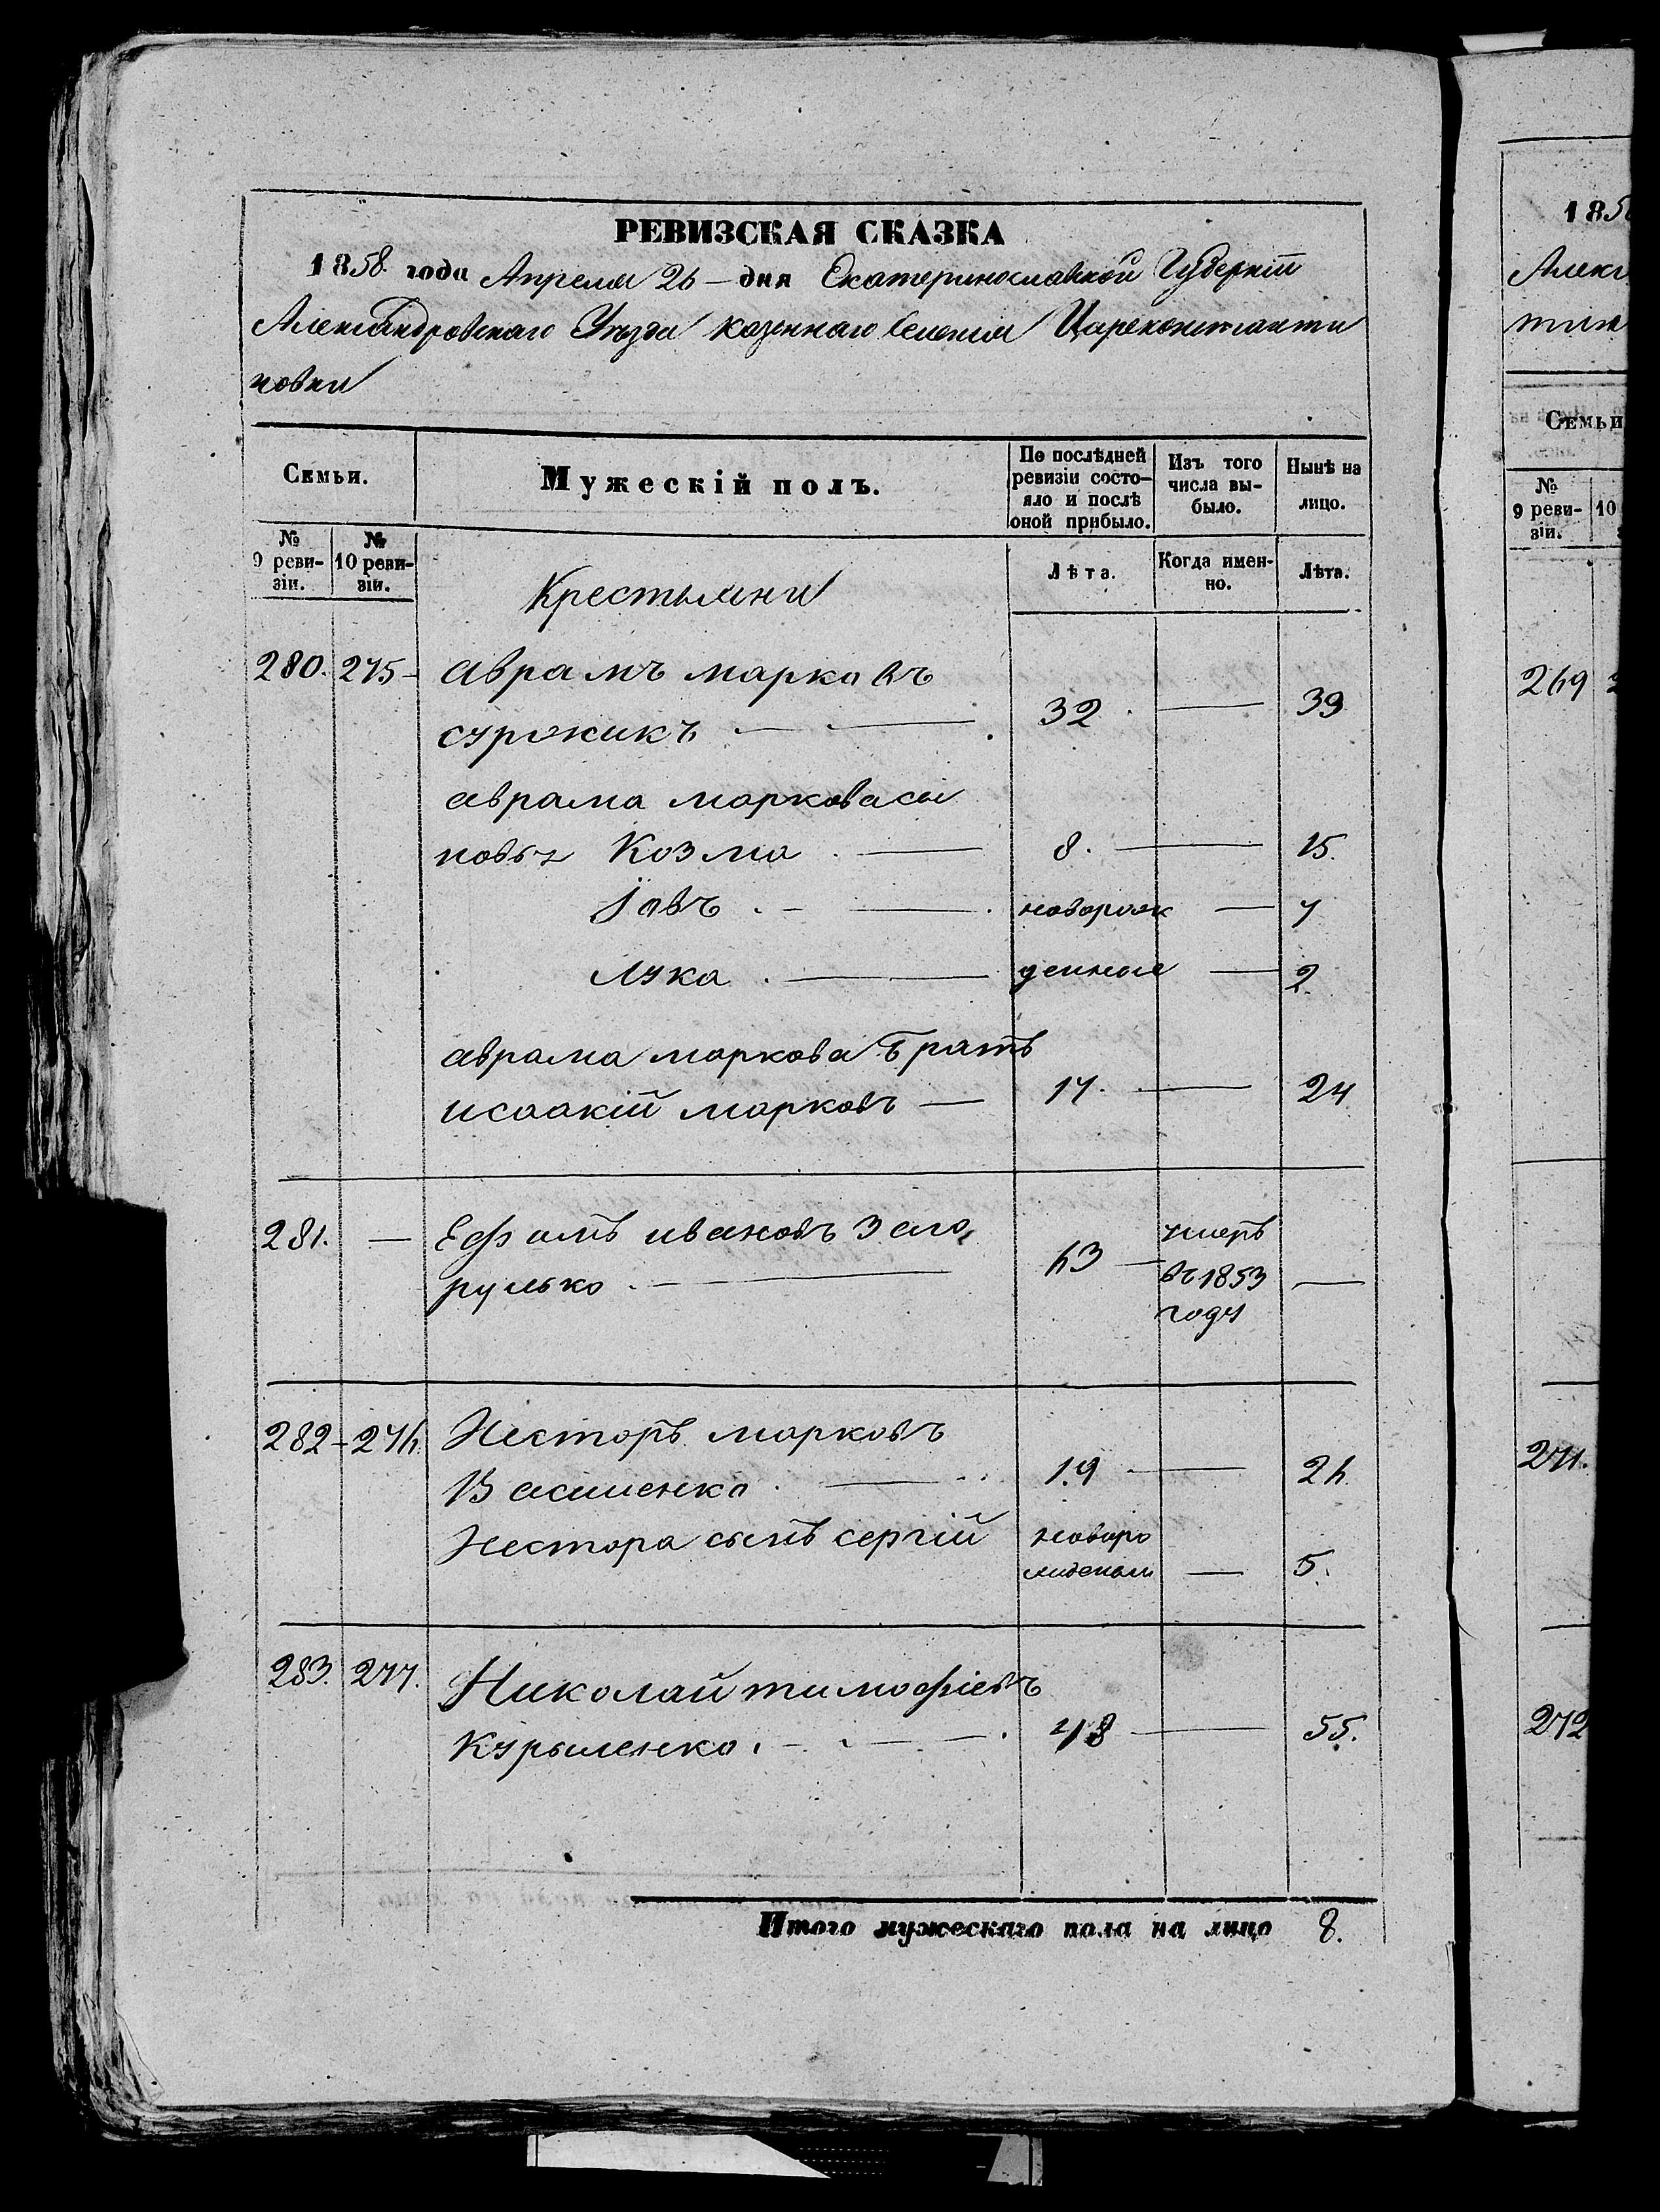 РЕВИЗСКАЯ СКАЗКА
1858 года Апреля 26 – дня Екатеринославской Губерніи
Александровскаго Уезда казеннаго Селенія Цареконстанти
новки
Семьи. Мужескій полъ. По послѣдней ревизіи состо- яло и послѣ оной прибыло. Изъ того числа вы- было. Нынѣ на лицо.
№ 9 реви- зіи. № 10 реви- зіи. Лѣта. Когда имен- но. Лѣта.
Крестьяни
280. 275 – аврамъ марковъ
суржикъ 32 39
аврама маркова сы
новья Козма 8. 15.
Іовъ новорож 7
Лука денные 2.
аврама маркова братъ
исаакій марковъ 17. 24
281. — Ефимъ ивановъ
рулько 63 умеръ въ 1853 году —
282 – 276. Несторъ марковъ
19 26
Нестора сынъ сергій новоро жденный 5.
283. 277. Николай тимофіевъ
Курыленко 48 55.
Итого мужескаго пола на лицо 8.
185
Алек
тин
Семьи
№ 9 реви- зіи. 10
269
271.
272